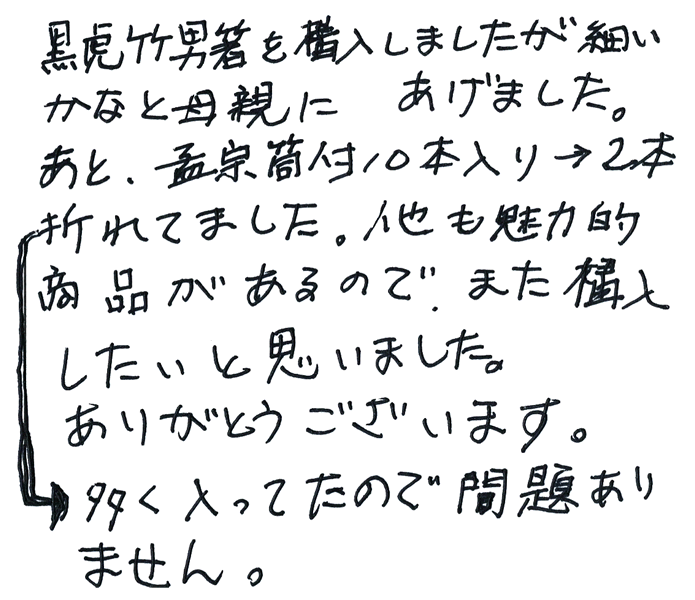 黒虎竹男箸を購入しましたが細い
かなと母親に あげました。
あと、孟宗筒付10本入り→2本
折れてました。他も魅力的
商品があるので、また購入
したいと思いました。
ありがとうございます。
多く入ってたので問題あり
ません。